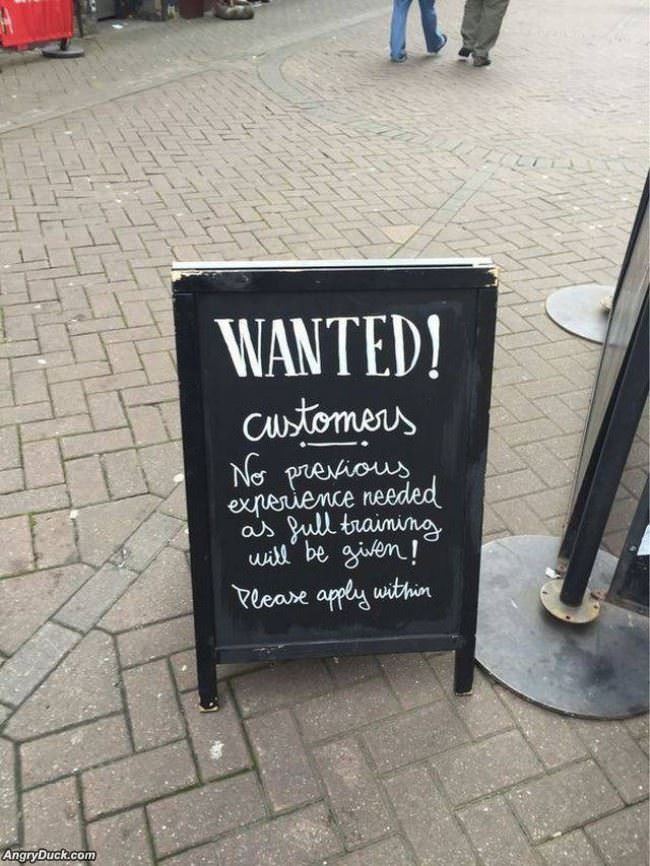 WANTED!
customers
No previous
experience needed
as full training
will be given!
Please apply within
AngryDuck.com